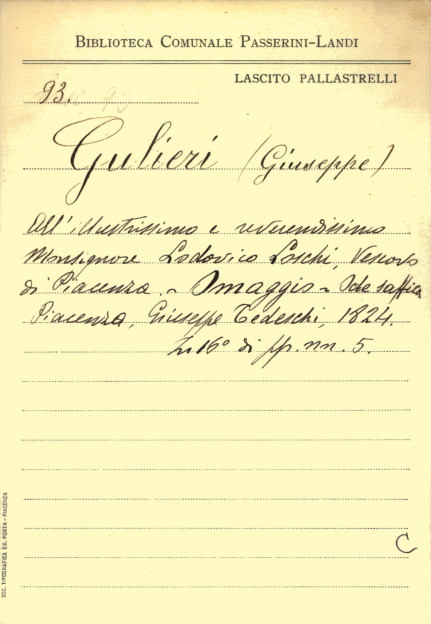 BIBLIOTECA COMUNALE PASSERINI-LANDI
LASCITO PALLASTRELLI
93.
Gulieri (Giuseppe)
All'illustrissimo e reverendissimo
Monsignore Lodovico Loschi, Vescovo
di Piacenza. - Omaggio - Ode saffica
Piacenza, Giuseppe Tedeschi, 1824.
In 16° di pp. nn. 5.
C
SOC. TIPOGRAFICA ED. PORTA - PIACENZA